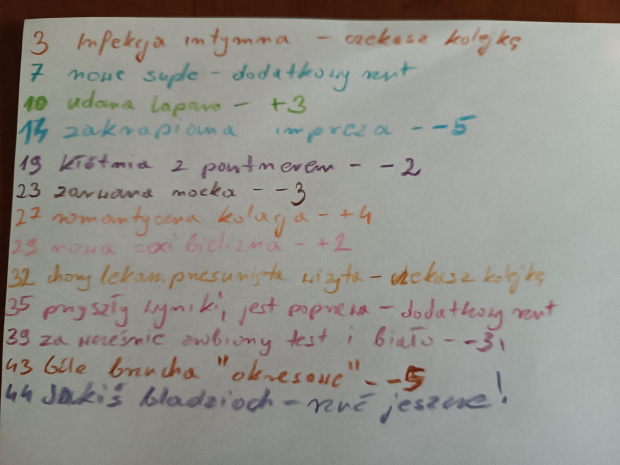 3 Infekcja intymna - czekasz kolejkę
7 nowe suple - dodatkowy rzut
10 udana laparo - +3
14 zakrapiana impreza - -5
19 kłótnia z partnerem - -2
23 zarwana nocka - -3
27 romantyczna kolacja - +4
29 nowa sexi bielizna - +2
32 chory lekarz, przesunięta wizyta - czekasz kolejkę
35 przyszły wyniki, jest poprawa - dodatkowy rzut
39 za wcześnie zrobiony test i biało - -3,
43 bóle brzucha "okresowe" - -5
44 Jakiś bladzioch - rzuć jeszcze!